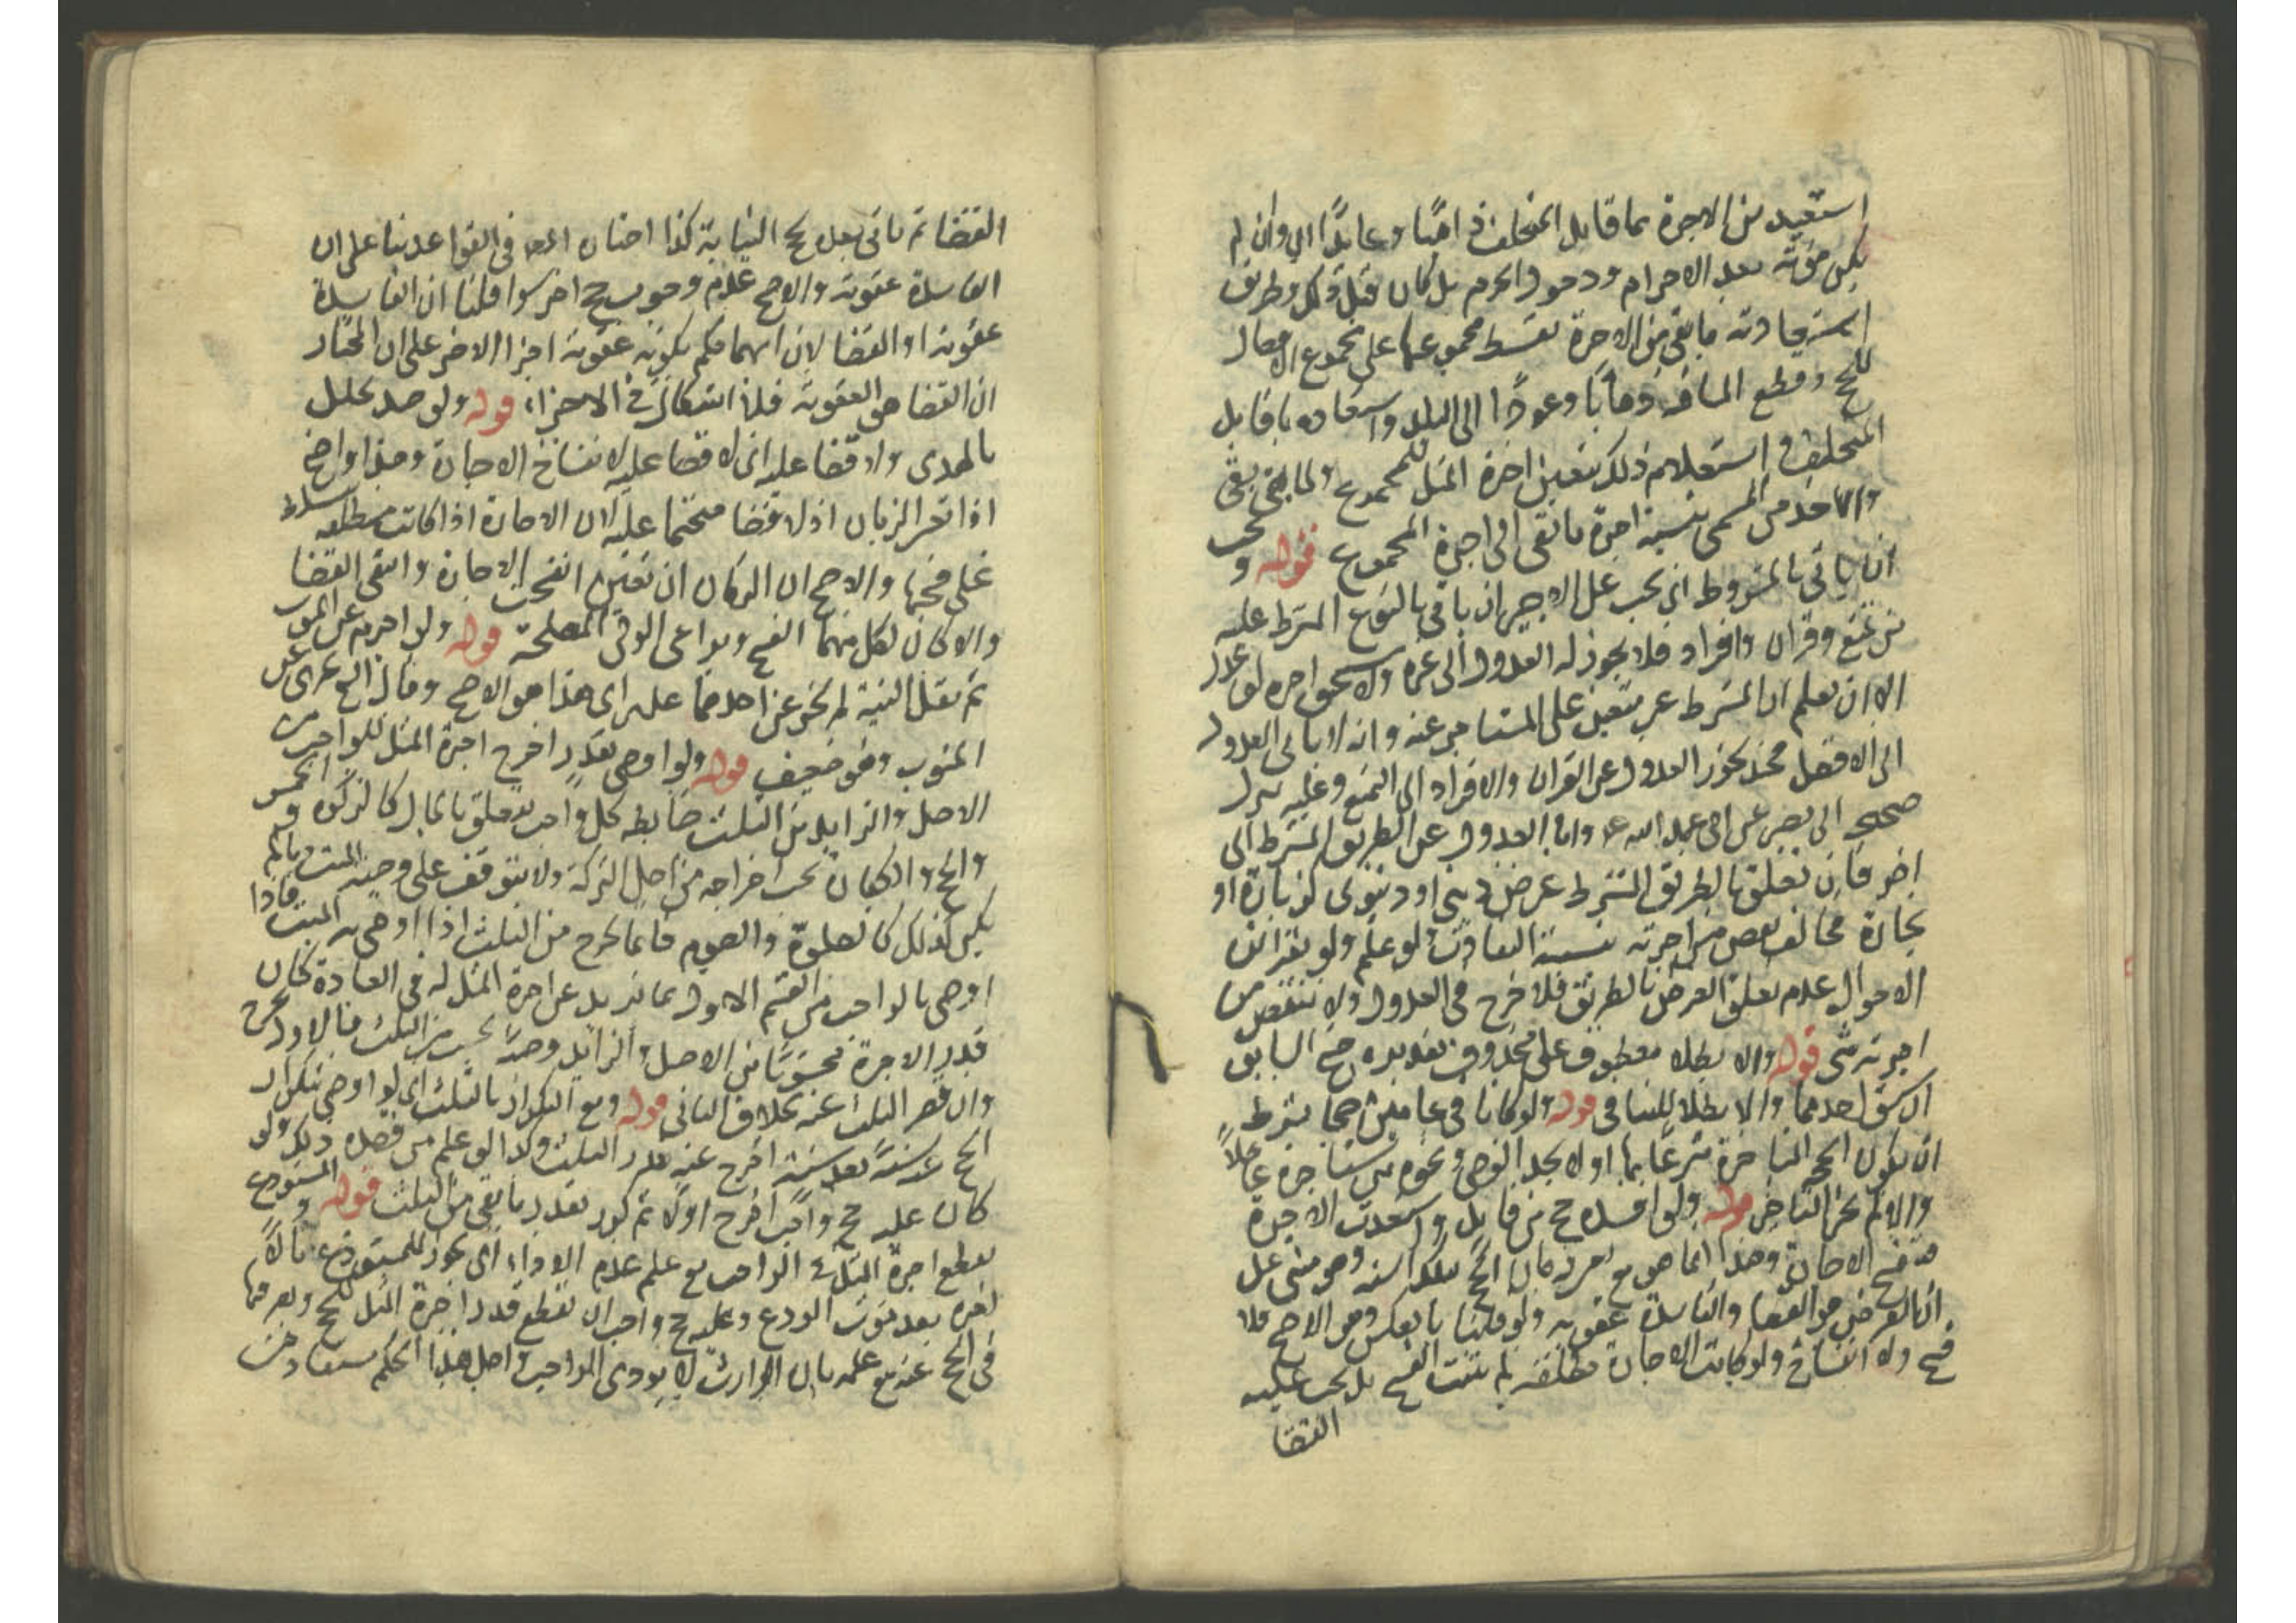 استعيد من الاجرة بما قابل المتخلف ذاهبًا وعايدًا اي وان لم
يكن موته بعد الاحرام ودخول الحرم بل كان قبل ذلك وطريق
استعادته ما بقي من الاجرة تقسط مجموعها على مجموع الافعال
للحج وقطع المسافة ذهابًا وعودًا الى البلد واستعادة ما قابل
المتخلف واستعلام ذلك بتعيين اجرة المثل للمجموع ولما بقي يبقى
والاخذ من المسمى بنسبة اجرة ما بقى الى اجرة المجموع قوله ويجب
ان ياتي بالمشروط اي يجب على الاجير ان ياتي بالنوع المشترط عليه
من تمتع وقران وافراد فلا يجوز له العدول الى غيره ولا يستحق اجره لو عدل
الا ان يعلم ان المشترط غير متعين على المستاجر عنه وانه لا ياتي العدول
الى الافضل فحينئذ يجوز العدول عن القران والافراد الى التمتع وعليه ينزل
صحيح ابي بصير عن ابي عبد الله ع واما العدول عن الطريق المشترط الى
اخر فان تعلق بالطريق المشترط غرض ديني او دنيوي كزيارة او
تجارة فخالف نقص من اجرته بنسبة التفاوت ولو علم ولو بقرائن
الاحوال عدم تعلق الغرض بالطريق فلا حرج في العدول ولا ينقص من
اجرته شي قوله والا بطلا معطوف على محذوف تقديره صح السابق
ان سبق احدهما والا بطلا للتنافي قوله ولو كانا في عامين صحا بشرط
ان يكون الحجة المتاخرة متبرعًا بها او لا يجد الوصي ونحوه من يستاجره عاجلًا
والا لم يجز التاخير قوله ولو افسد حج من قابل واستعيدت الاجرة
فتنفسخ الاجارة وهذا انما هو مع تعين زمان الحج بتلك السنة وهو مبني على
ان الفرض هو القضا والفاسدة عقوبة ولو قلنا بالعكس وهو الاصح فلا
فسخ ولا انفساخ ولو كانت الاجارة مطلقة لم يثبت الفسخ بل يجب عليه
القضا
القضا ثم ياتي بعده بحج النيابة كذا اختار المص في القواعد بناء على ان
الفاسدة عقوبة والاصح عدم وجوب حج اخر سوا قلنا ان الفاسدة
عقوبة او القضا لان ايهما حكم بكونه عقوبة اجزا الاخر على ان المختار
ان القضا هو العقوبة فلا اشكال في الاجزاء قوله ولو صد تحلل
بالهدى ولا قضا عليه اي لا قضا عليه لانفساخ الاجارة وهذا واضح
اذا تعين الزمان اذ لا قضا متحتما عليه لان الاجارة اذا كانت مطلقه سلط
على فسخها والاصح ان الزمان ان تعين انفسخت الاجارة وانتفى القضا
والا كان لكل منهما الفسخ ويراعى الوقي المصلحة قوله ولو احرم عن المنوب
ثم نقل النية لم يجز عن احدهما على راي هذا هو الاصح وقال الشيخ يجزى عن
المنوب وهو ضعيف قوله ولو اوصى بقدر اخرج اجرة المثل للواجب من
الاصل والزايد من الثلث ضابطه كل واجب يتعلق بالمال كالزكوة والخمس
والحج والكفارة يجب اخراجه من اصل التركة ولا يتوقف على وصية الميت وما لم
يكن كذلك كالصلوة والصوم فانما يخرج من الثلث اذا اوصى به الميت فاذا
اوصى بالواجب من القسم الاول بما يزيد عن اجرة المثل له في العادة كان
قدر الاجرة محسوبًا من الاصل والزايد وصية يجب من الثلث فالاول يخرج
وان قصر الثلث عنه بخلاف الثاني قوله ومع التكرار بالثلث اي لو اوصى بتكرار
الحج عنه سنة بعد سنة اخرج عنه بقدر الثلث وكذا لو علم من قصده ذلك ولو
كان عليه حج واجب اخرج اولا ثم كرر بقدر ما بقي من الثلث قوله والمستودع
يقطع اجرة المثل في الواجب مع علم عدم الاداء اي يجوز للمستودع مالًا
لغيره بعد موت المودع وعليه حج واجب ان يقطع قدر اجرة المثل للحج ويصرفها
في الحج عنه مع علمه بان الوارث لا يودى الواجب واصل هذا الحكم مستفاد من